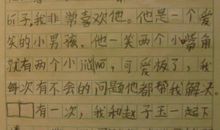 子我非常喜欢他。他是一个爱
笑的小男孩，他一笑两个小嘴角
就有两个小酒窝，可爱极了，我
每次有不会的问题他都帮我解决
有一次，我和赵子玉一起下